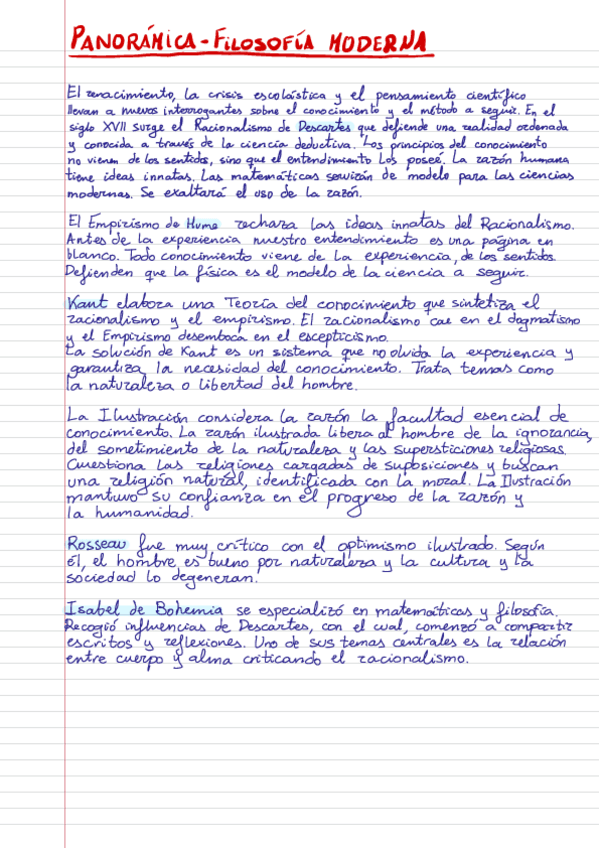 PANORÁMICA - FILOSOFÍA MODERNA
El renacimiento, la crisis escolástica y el pensamiento científico
llevan a nuevos interrogantes sobre el conocimiento y el método a seguir. En el
siglo XVII surge el Racionalismo de Descartes que defiende una realidad ordenada
y conocida a través de la ciencia deductiva. Los principios del conocimiento
no vienen de los sentidos, sino que el entendimiento los poseé. La razón humana
tiene ideas innatas. Las matemáticas servirán de modelo para las ciencias
modernas. Se exaltará el uso de la razón.
El Empirismo de Hume rechaza las ideas innatas del Racionalismo.
Antes de la experiencia nuestro entendimiento es una página en
blanco. Todo conocimiento viene de la experiencia, de los sentidos.
Defienden que la física es el modelo de la ciencia a seguir.
Kant elabora una Teoría del conocimiento que sintetiza el
racionalismo y el empirismo. El racionalismo cae en el dogmatismo
y el Empirismo desemboca en el escepticismo.
La solución de Kant es un sistema que no olvida la experiencia y
garantiza la necesidad del conocimiento. Trata temas como
la naturaleza o libertad del hombre.
La Ilustración considera la razón la facultad esencial de
conocimiento. La razón ilustrada libera al hombre de la ignorancia,
del sometimiento de la naturaleza y las supersticiones religiosas.
Cuestiona las religiones cargadas de suposiciones y buscan
una religión natural, identificada con la moral. La Ilustración
mantuvo su confianza en el progreso de la razón y
la humanidad.
Rosseau fue muy crítico con el optimismo ilustrado. Según
él, el hombre es bueno por naturaleza y la cultura y la
sociedad lo degeneran.
Isabel de Bohemia se especializó en matemáticas y filosofía.
Recogió influencias de Descartes, con el cual, comenzó a compartir
escritos y reflexiones. Uno de sus temas centrales es la relación
entre cuerpo y alma criticando el racionalismo.